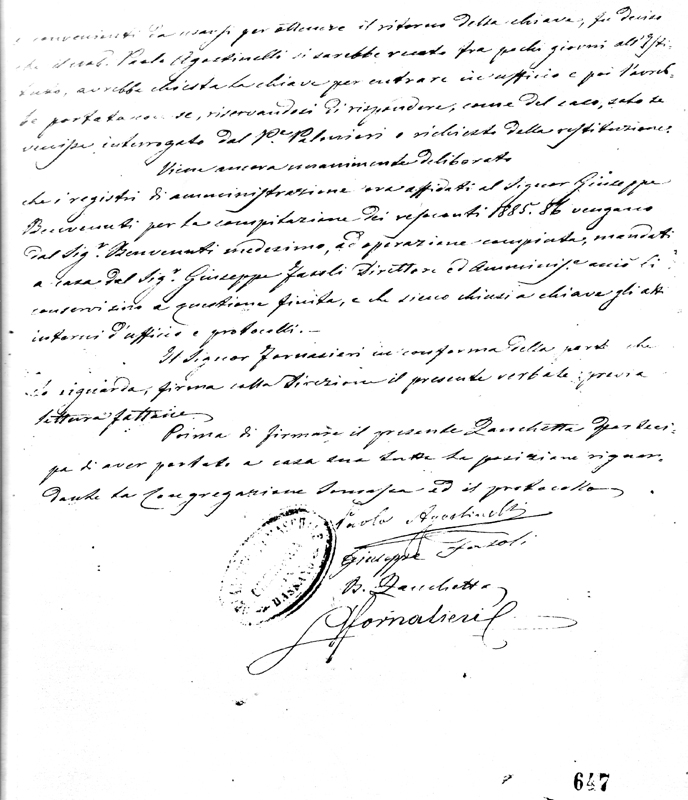 e convenienti da usarsi per ottenere il ritorno della chiave, fu deciso
che il nob. Paolo Agostinelli si sarebbe recato fra pochi giorni all'Isti-
tuto, avrebbe chiesta la chiave per entrare in ufficio e poi l'avreb-
be portata con se, riservandosi di rispondere, come del caso, solo se
venisse interrogato dal P.e Palmieri o richiesto della restituzione.
Viene ancora unanimemente deliberato
che i registri di amministrazione ora affidati al Signor Giuseppe
Benvenuti per la compilazione dei resoconti 1885.86 vengano
dal Sig.r Benvenuti medesimo, ad operazione compiuta, mandati
a casa dal Sig.r Giuseppe Fasoli Direttore ed Amminis.e acciò li
conservi sino a questione finita, e che sieno chiusi a chiave gli atti
interni d'ufficio e protocolli.—
Il Signor Fornasieri in conferma della parte che
lo riguarda, firma colla Direzione il presente verbale previa
lettura fattane
Prima di firmare il presente Zanchetta parteci-
pa di aver portato a casa sua tutta la posizione riguar-
dante la Congregazione Somasca ed il protocollo
Paolo Agostinelli
Giuseppe Fasoli
B. Zanchetta
Fornasieri
BASSANO
647